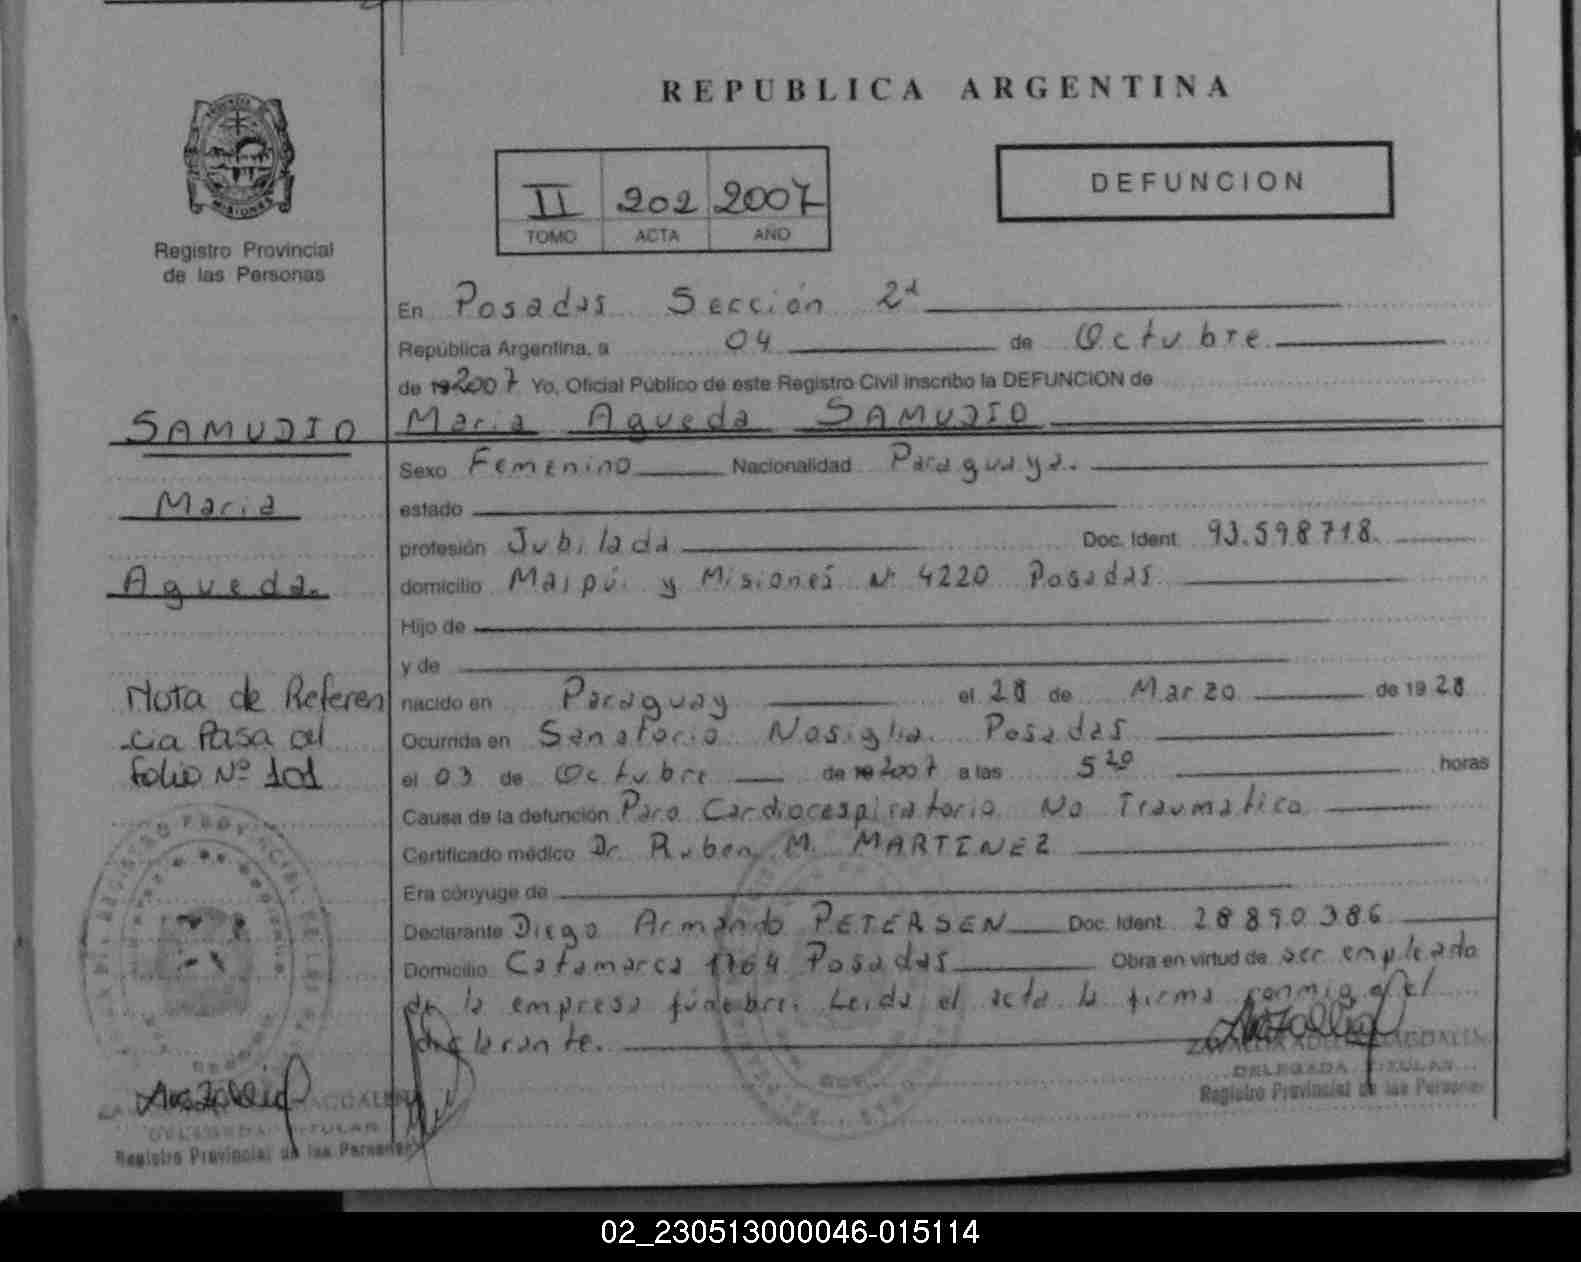 REPUBLICA ARGENTINA
DEFUNCION
II 202 2007
TOMO ACTA AÑO
MISIONES
Registro Provincial
de las Personas
En Posadas Sección 2ª
República Argentina, a 04 de Octubre
de 19 2007 Yo, Oficial Público de este Registro Civil inscribo la DEFUNCION de
Maria Agueda SAMUDIO
SAMUDIO
Maria
Agueda.
Sexo Femenino Nacionalidad Paraguaya.
estado
profesión Jubilada Doc. Ident. 93.598718.
domicilio Maipú y Misiones Nº 4220 Posadas
Hijo de
y de
nacido en Paraguay el 28 de Marzo de 1928
Ocurrida en Sanatorio Nosiglia Posadas
el 03 de Octubre de 19 2007 a las 5 20 horas
Causa de la defunción Paro Cardiorespiratorio No Traumatico
Certificado médico Dr. Ruben M. MARTINEZ
Era cónyuge de
Declarante Diego Armando PETERSEN Doc. Ident. 28890386
Domicilio Catamarca 1764 Posadas Obra en virtud de ser empleado
de la empresa fúnebre. Leída el acta la firma conmigo el
declarante.
Nota de Referen
cia Pasa al
folio Nº 101
DELEGADA TITULAR
Registro Provincial de las Personas
DELEGADA TITULAR
Registro Provincial de las Personas
02_230513000046-015114